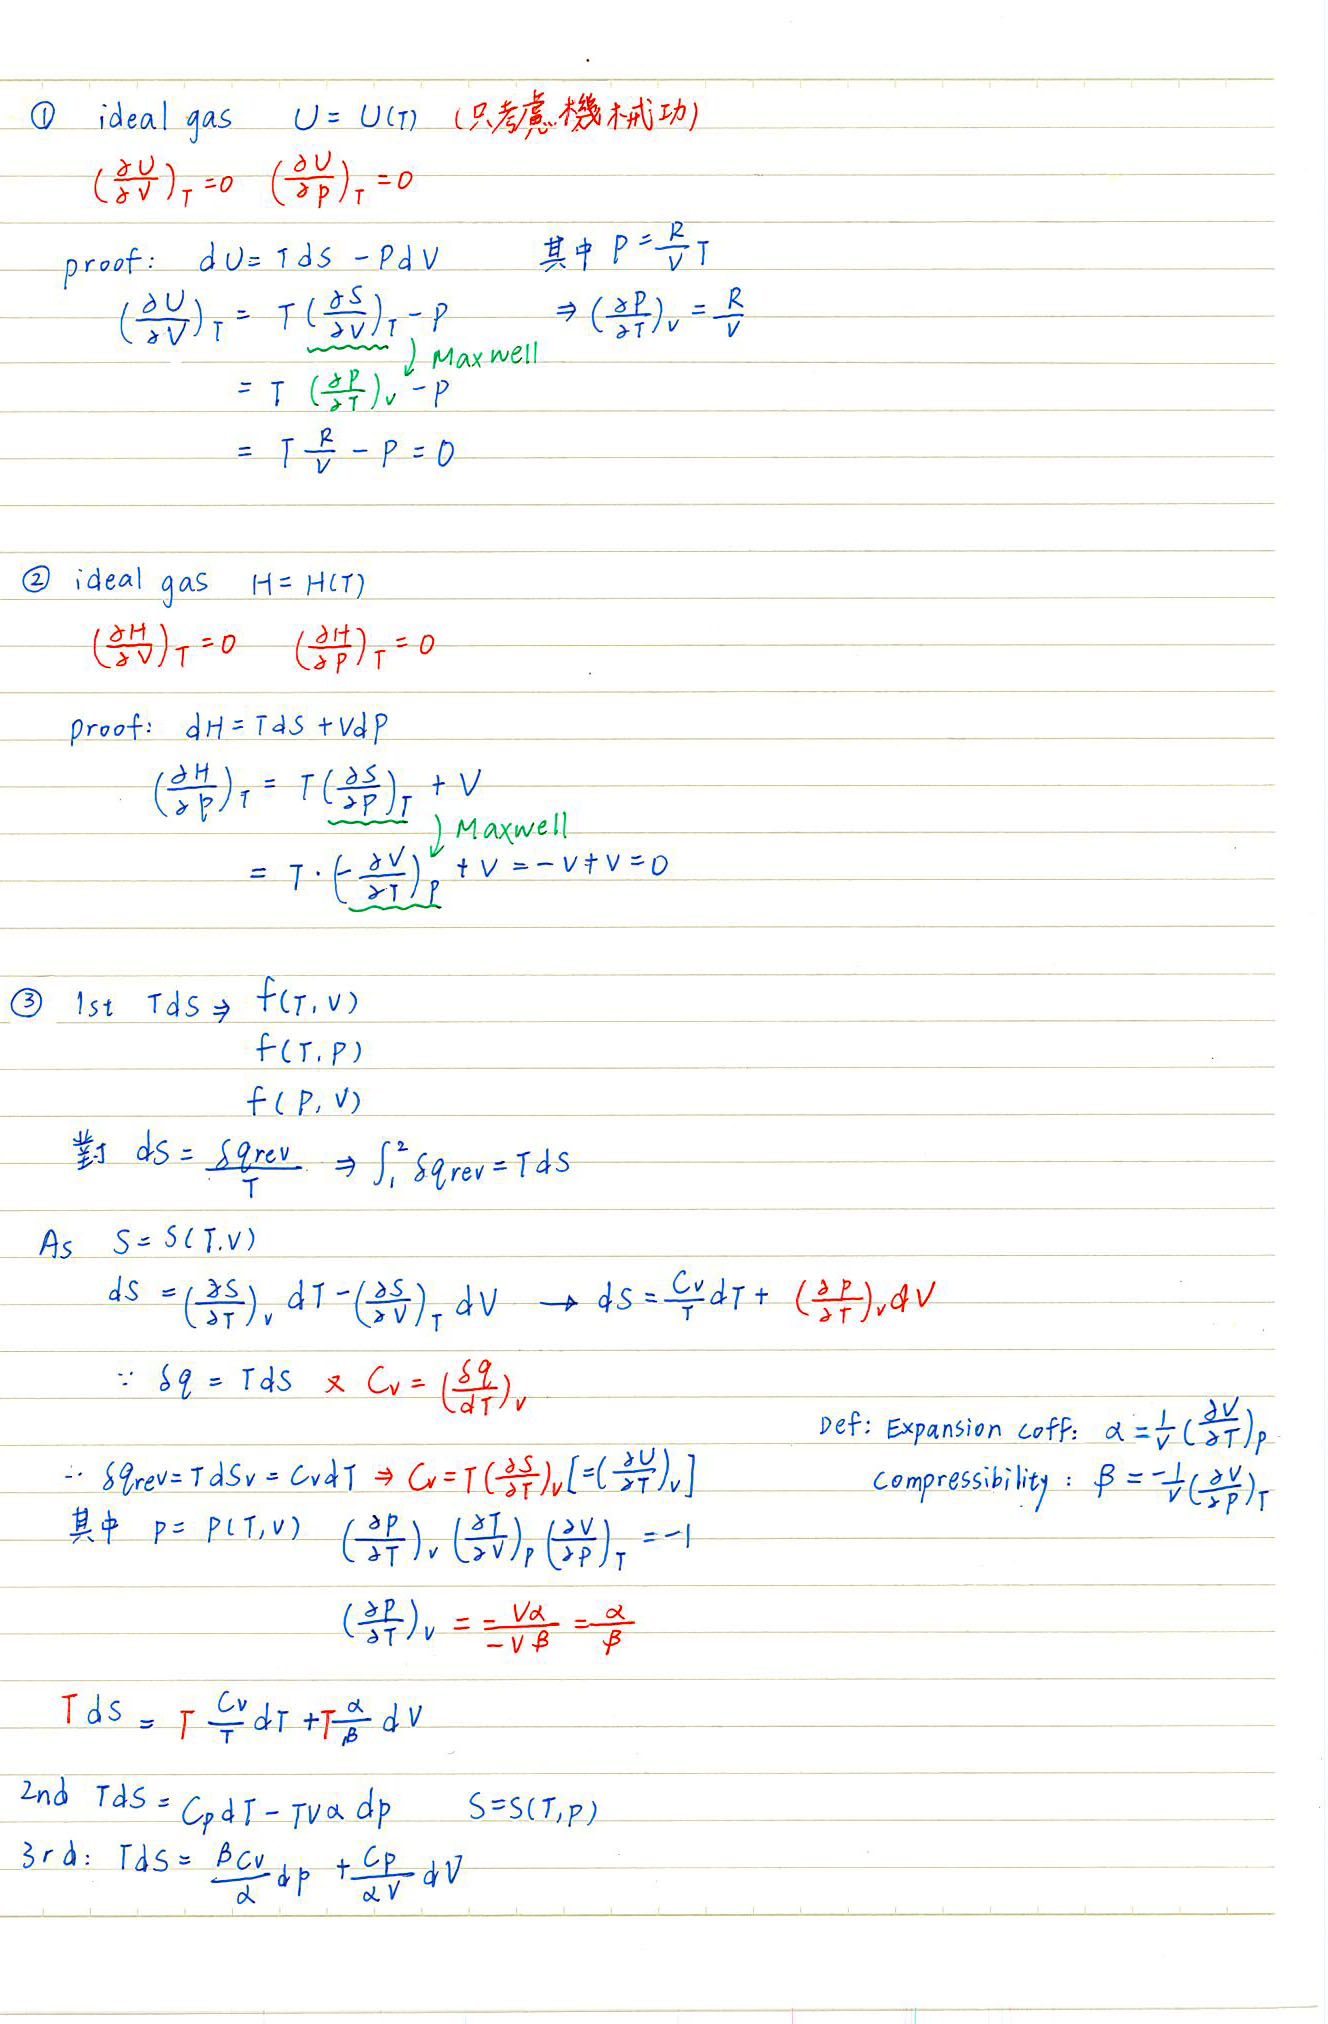 ① ideal gas U = U(T) (只考慮機械功)
(∂U/∂V)_T = 0 (∂U/∂P)_T = 0
proof: dU = TdS - PdV 其中 P = R/V T
(∂U/∂V)_T = T(∂S/∂V)_T - P ⇒ (∂P/∂T)_V = R/V
Maxwell
= T (∂P/∂T)_V - P
= T R/V - P = 0
② ideal gas H = H(T)
(∂H/∂V)_T = 0 (∂H/∂P)_T = 0
proof: dH = TdS + VdP
(∂H/∂P)_T = T(∂S/∂P)_T + V
Maxwell
= T · (-∂V/∂T)_P + V = -V + V = 0
③ 1st TdS ⇒ f(T, V)
f(T, P)
f(P, V)
對 dS = δqrev/T ⇒ ∫₁² δqrev = TdS
As S = S(T.V)
dS = (∂S/∂T)_V dT - (∂S/∂V)_T dV → dS = Cv/T dT + (∂P/∂T)_V dV
∵ δq = TdS 又 Cv = (δq/dT)_V
Def: Expansion coff: α = 1/V (∂V/∂T)_P
∴ δqrev = TdSv = CvdT ⇒ Cv = T(∂S/∂T)_V [=(∂U/∂T)_V]
compressibility: β = -1/V (∂V/∂P)_T
其中 P = P(T, V) (∂P/∂T)_V (∂T/∂V)_P (∂V/∂P)_T = -1
(∂P/∂T)_V = = Vα/-Vβ = α/β
TdS = T Cv/T dT + T α/β dV
2nd TdS = CpdT - TVα dp S=S(T,P)
3rd: TdS = βCv/α dp + Cp/αV dV